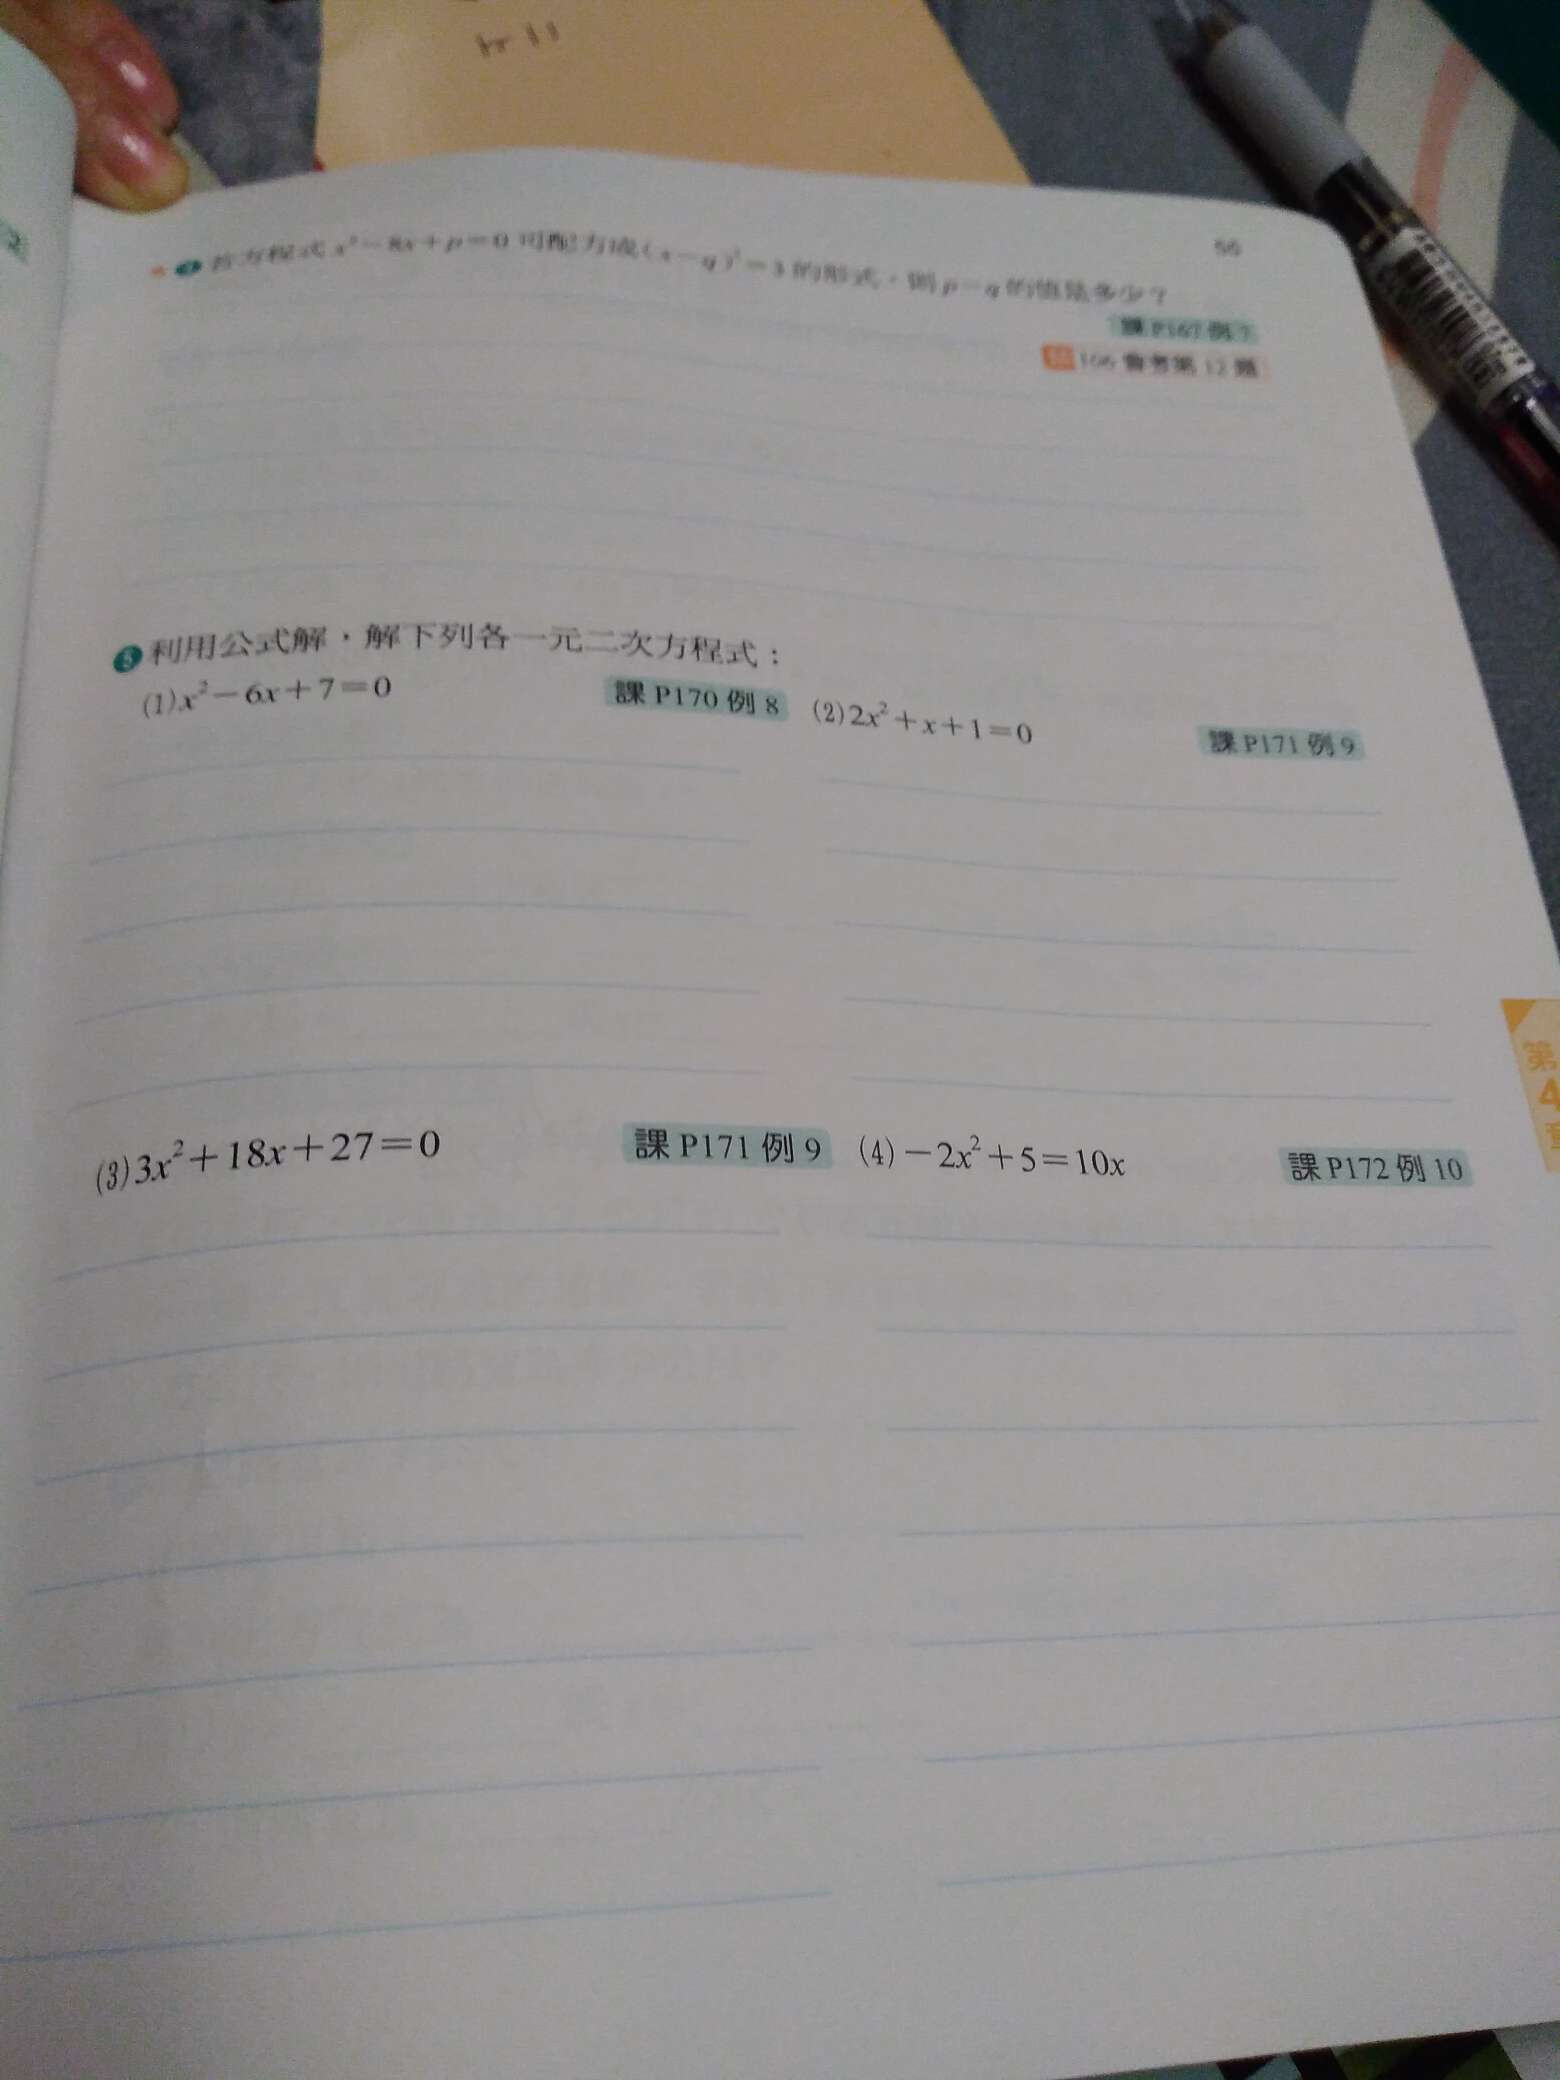 56
若方程式 x²－8x＋p＝0 可配方成(x－q)²＝3 的形式，則 p－q 的值是多少？
課 P167 例 7
106 會考第 12 題
5 利用公式解，解下列各一元二次方程式：
(1) x²－6x＋7＝0 課 P170 例 8 (2) 2x²＋x＋1＝0 課 P171 例 9
第
4
章
(3) 3x²＋18x＋27＝0 課 P171 例 9 (4)－2x²＋5＝10x 課 P172 例 10